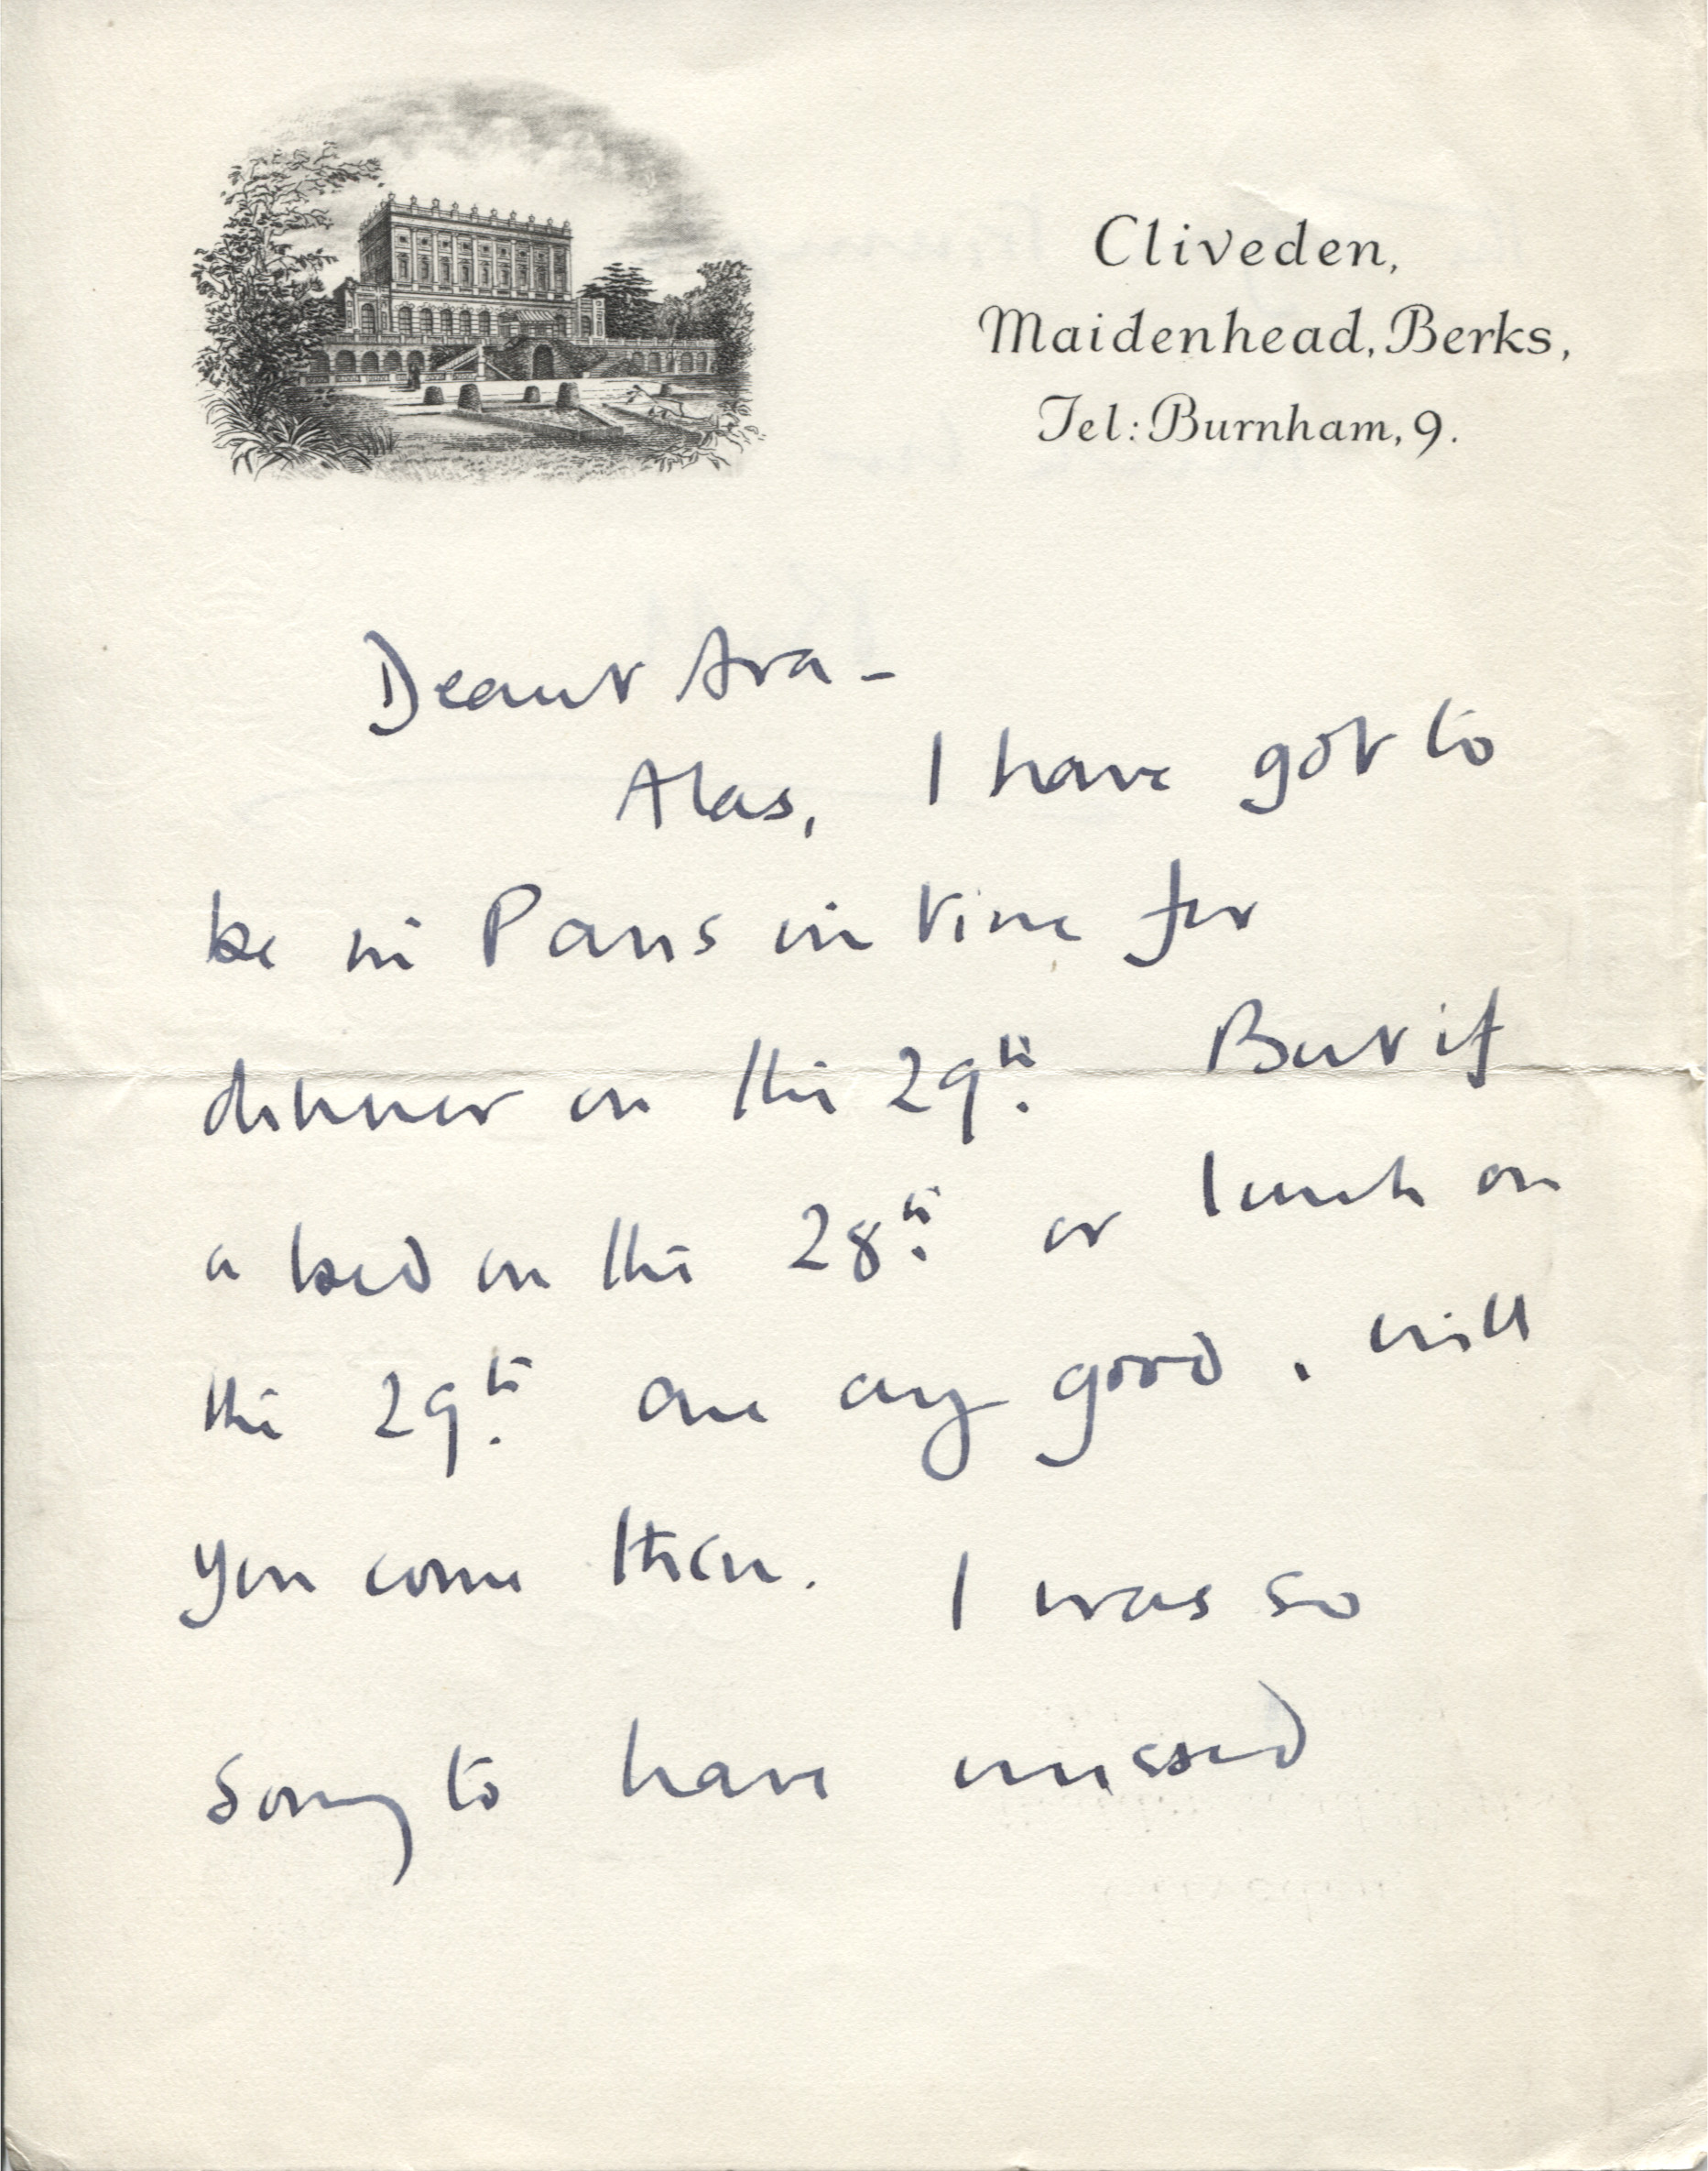 Cliveden,
Maidenhead, Berks,
Tel: Burnham, 9.
Dearest Ava –
Alas, I have got to
be in Paris in time for
dinner on the 29th. But if
a bed on the 28th or lunch on
the 29th are any good, will
you come then. I was so
sorry to have missed